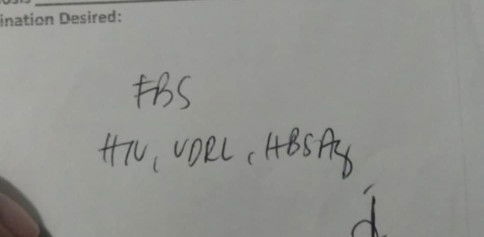 ination Desired:
FBS
HIV, VDRL, HBSAg